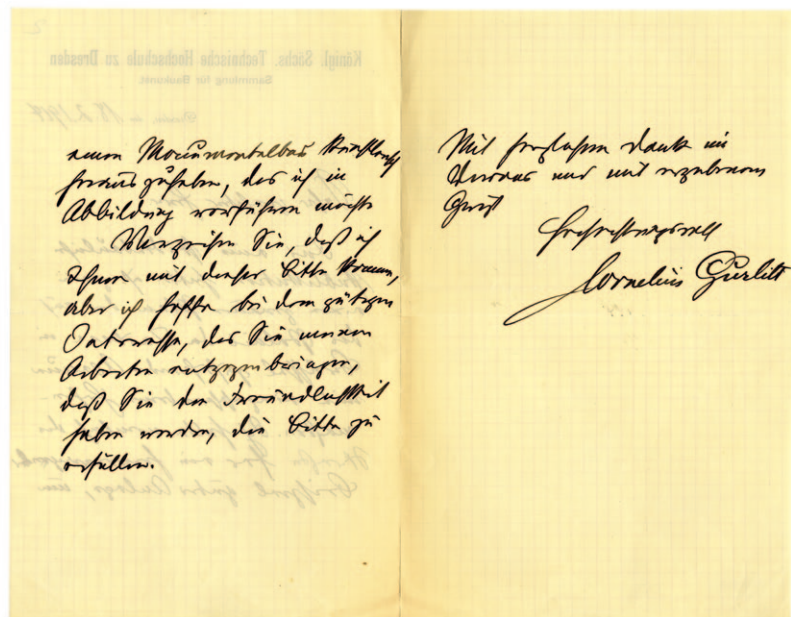 einen Monumentalbau künstlerisch
herauszuheben, das ich in
Abbildung vorführen möchte
Verzeihen Sie, daß ich
Ihnen mit dieser Bitte komme,
aber ich hoffe bei dem gütigen
Interesse, das Sie meinen
Arbeiten entgegenbringen,
daß Sie die Freundlichkeit
haben werden, die Bitte zu
erfüllen.
Mit herzlichem Dank im
Voraus und mit ergebenem
Gruß
Hochachtungsvoll
Cornelius Gurlitt
Königl. Sächs. Technische Hochschule zu Dresden
Sammlung für Baukunst.